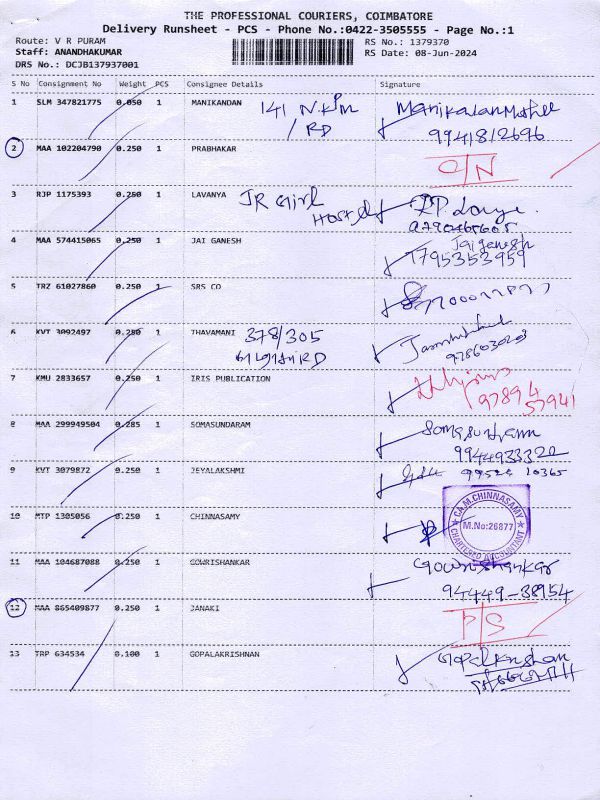 THE PROFESSIONAL COURIERS, COIMBATORE
Delivery Runsheet - PCS - Phone No.:0422-3505555 - Page No.:1
Route: V R PURAM
RS No.: 1379370
Staff: ANANDHAKUMAR
RS Date: 08-Jun-2024
DRS No.: DCJB137937001
S No Consignment No Weight PCS Consignee Details Signature
1 SLM 347821775 0.050 1 MANIKANDAN 141 N.K.M
/ RD
9941812696
2 MAA 102204790 0.250 1 PRABHAKAR
O/N
3 RJP 1175393 0.250 1 LAVANYA JR Girl
Hostel
4 MAA 574415065 0.250 1 JAI GANESH Jaiganesh
7795353959
5 TRZ 61027860 0.250 1 SRS CO
6 KVT 3092497 0.250 1 THAVAMANI 378/305
9786030203
7 KMU 2833657 0.250 1 IRIS PUBLICATION
97894
57941
8 MAA 299949504 0.285 1 SOMASUNDARAM Somasundaram
9944933322
9 KVT 3079872 0.250 1 JEYALAKSHMI 99524 10365
10 MTP 1305056 0.250 1 CHINNASAMY
CA.M.CHINNASAMY
M.No:26877
CHARTERED ACCOUNTANT
11 MAA 104687088 0.250 1 GOWRISHANKAR Gowrishankar
94449-38954
12 MAA 865409877 0.250 1 JANAKI
P/S
13 TRP 634534 0.100 1 GOPALAKRISHNAN